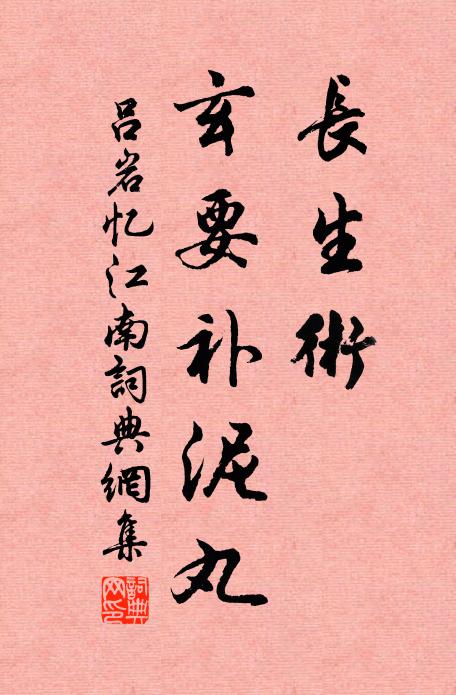 長生術
玄要补泥丸
吕岩忆江南詞典網集
詞典網印